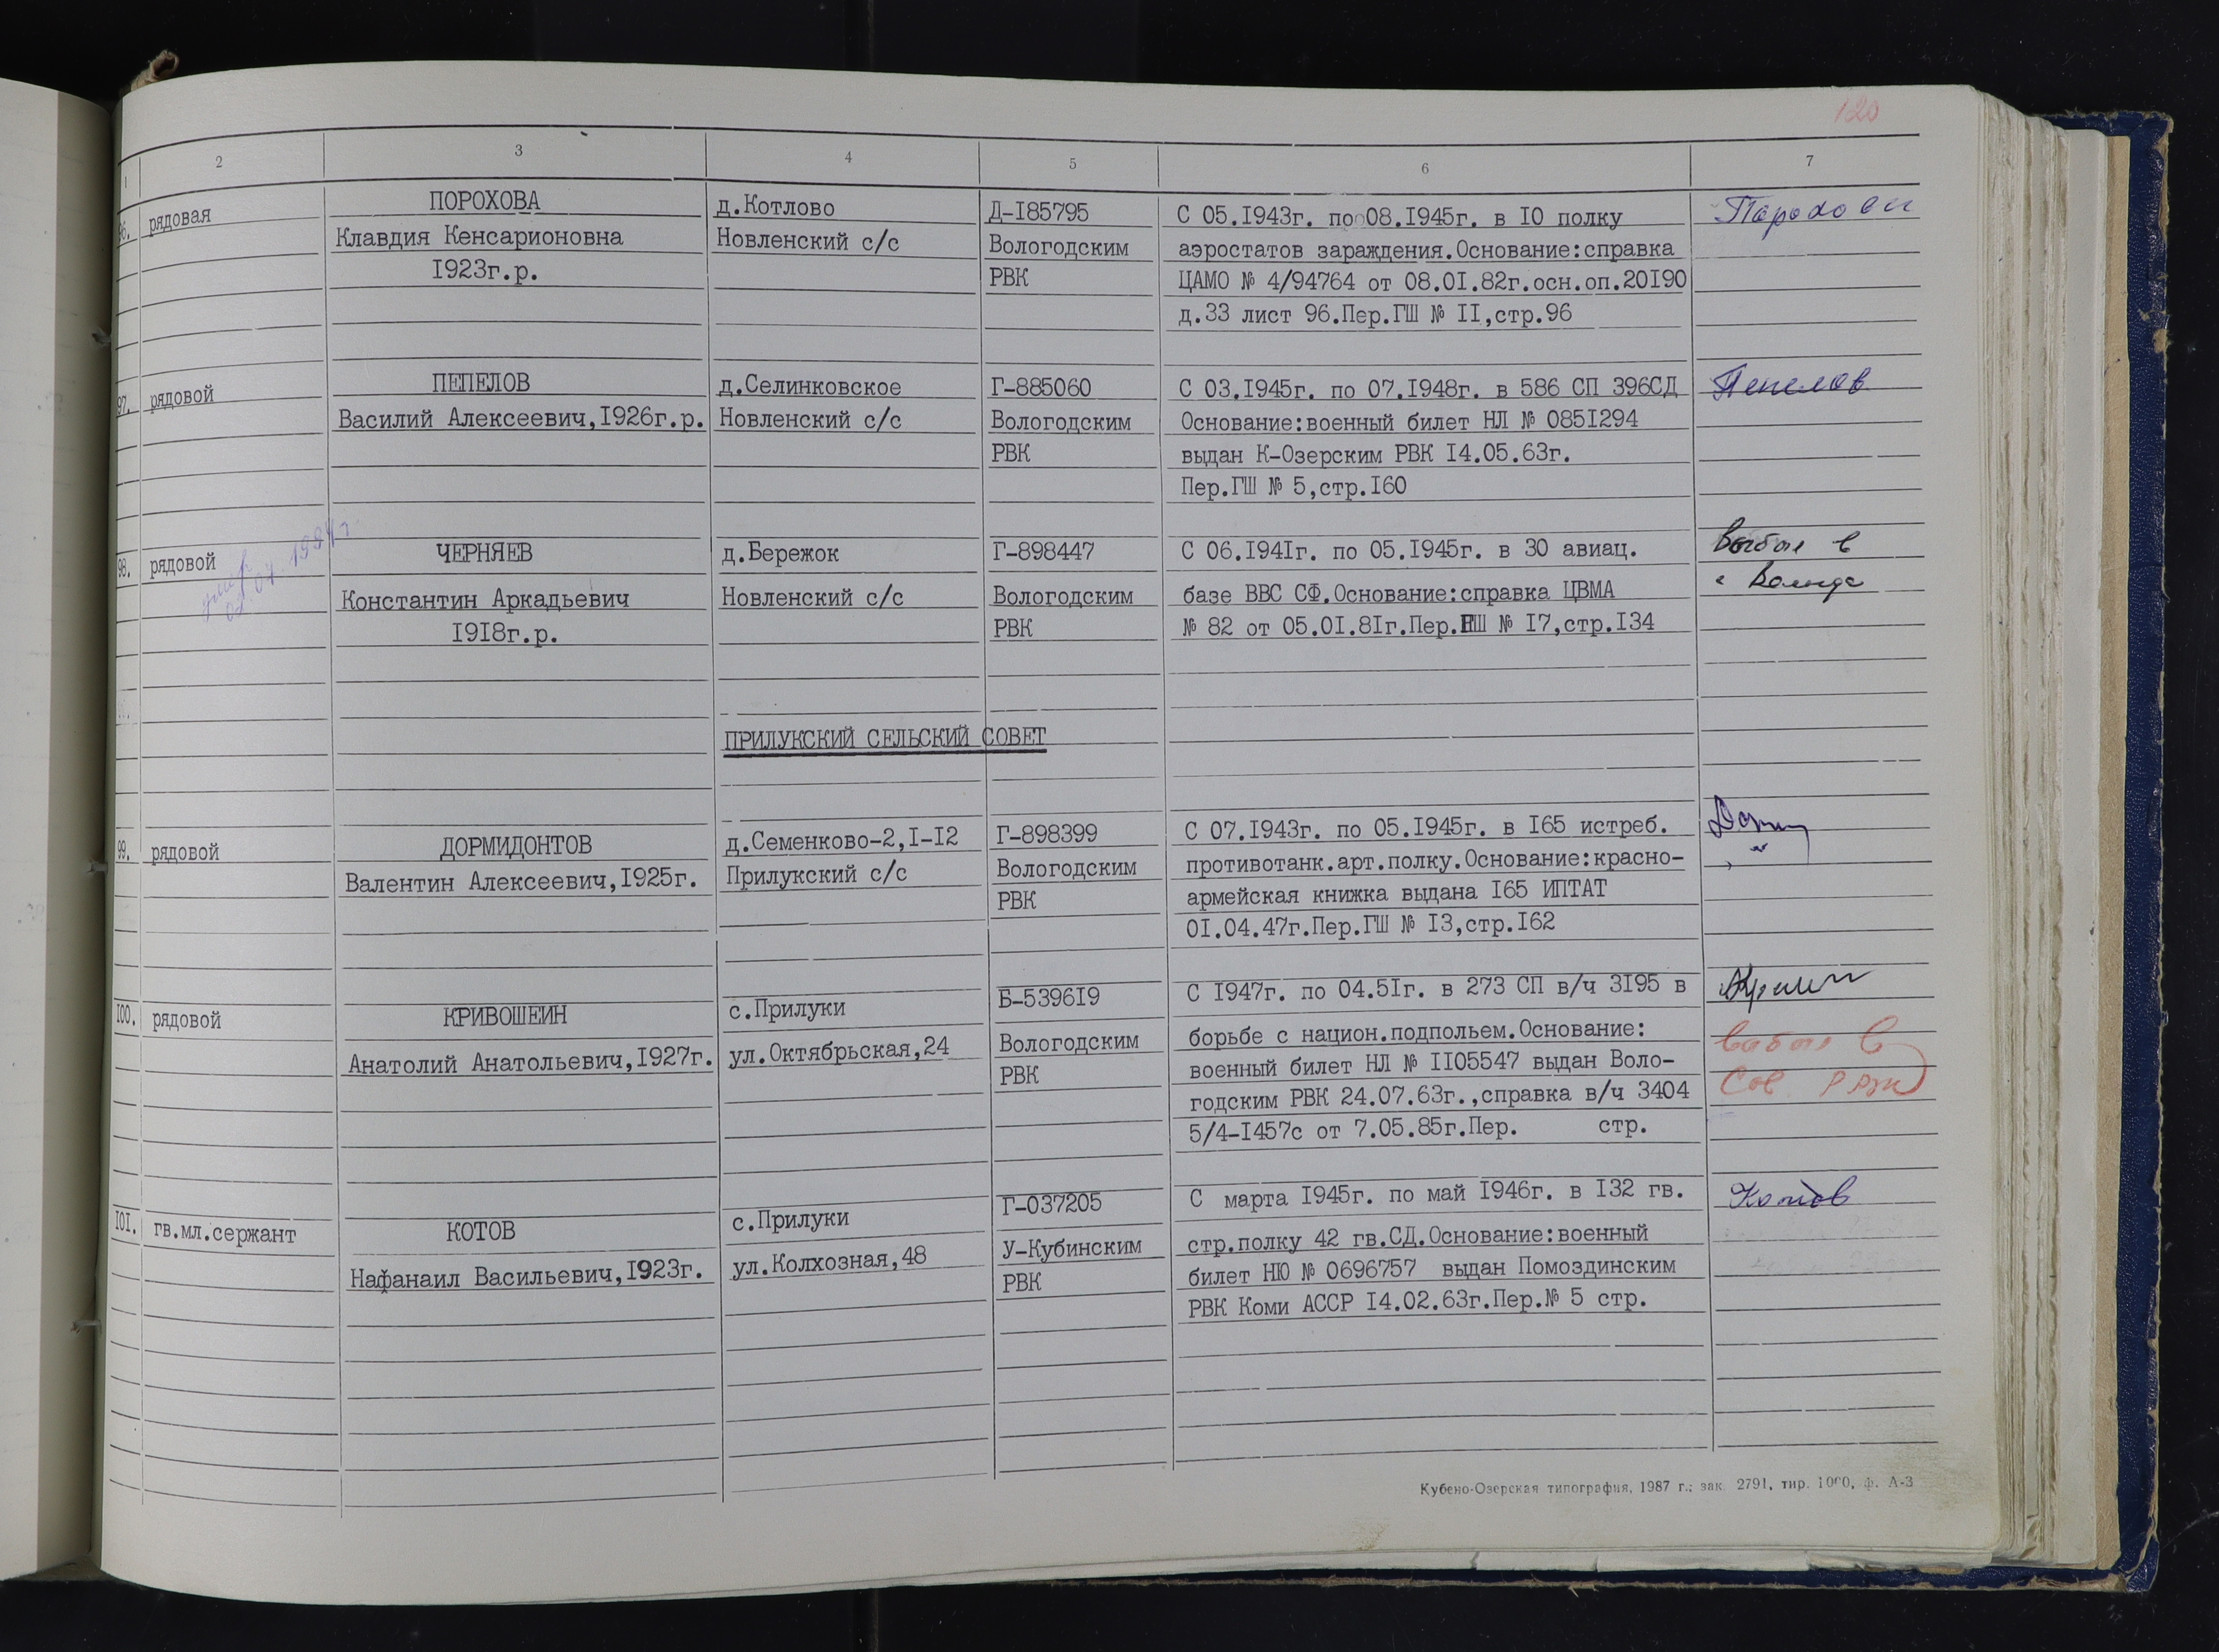 120
1 2 3 4 5 6 7
96. рядовая
ПОРОХОВА
Клавдия Кенсарионовна
1923г.р.
д.Котлово
Новленский с/с
Д-185795
Вологодским
РВК
С 05.1943г. по 08.1945г. в 10 полку
аэростатов зараждения.Основание:справка
ЦАМО № 4/94764 от 08.01.82г.осн.оп.20190
д.33 лист 96.Пер.ГШ № 11,стр.96
97. рядовой
ПЕПЕЛОВ
Василий Алексеевич,1926г.р.
д.Селинковское
Новленский с/с
Г-885060
Вологодским
РВК
С 03.1945г. по 07.1948г. в 586 СП 396СД
Основание:военный билет НЛ № 0851294
выдан К-Озерским РВК 14.05.63г.
Пер.ГШ № 5,стр.160
Пепелов
98. рядовой
умер
ЧЕРНЯЕВ
Константин Аркадьевич
1918г.р.
д.Бережок
Новленский с/с
Г-898447
Вологодским
РВК
С 06.1941г. по 05.1945г. в 30 авиац.
базе ВВС СФ.Основание:справка ЦВМА
№ 82 от 05.01.81г.Пер.ГШ № 17,стр.134
Выбыл в
ПРИЛУКСКИЙ СЕЛЬСКИЙ СОВЕТ
99. рядовой
ДОРМИДОНТОВ
Валентин Алексеевич,1925г.
д.Семенково-2,1-12
Прилукский с/с
Г-898399
Вологодским
РВК
С 07.1943г. по 05.1945г. в 165 истреб.
противотанк.арт.полку.Основание:красно-
армейская книжка выдана 165 ИПТАТ
01.04.47г.Пер.ГШ № 13,стр.162
100. рядовой
КРИВОШЕИН
Анатолий Анатольевич,1927г.
с.Прилуки
ул.Октябрьская,24
Б-539619
Вологодским
РВК
С 1947г. по 04.51г. в 273 СП в/ч 3195 в
борьбе с национ.подпольем.Основание:
военный билет НЛ № 1105547 выдан Воло-
годским РВК 24.07.63г.,справка в/ч 3404
5/4-1457с от 7.05.85г.Пер. стр.
выбыл в
Сов.
101. гв.мл.сержант
КОТОВ
Нафанаил Васильевич,1923г.
с.Прилуки
ул.Колхозная,48
Г-037205
У-Кубинским
РВК
С марта 1945г. по май 1946г. в 132 гв.
стр.полку 42 гв.СД.Основание:военный
билет НЮ № 0696757 выдан Помоздинским
РВК Коми АССР 14.02.63г.Пер.№ 5 стр.
Котов
Кубено-Озерская типография, 1987 г.; зак. 2791, тир. 1000, ф. А-3